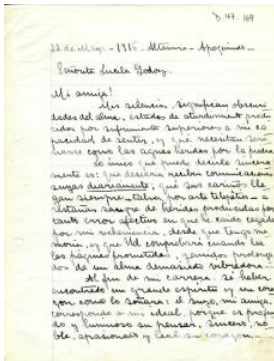 D. 47. 169
22 de Mayo - 1915 - Altamira - Apoquindo -
Señorita Lucila Godoy.
Mi amiga!
Mis silencios significan obscuri
dades del alma, estados de aturdimiento produ
cidos por sufrimientos superiores a mi ca
pacidad de sentir, y que necesitan ser
como las aguas heridas por la piedra
Lo único que puedo decirle sincera
mente es: que desearía recibir comunicaciones
suyas diariamente, que sus cariños lle
gan siempre - talvez por arte telepático - a
restañar sangre de heridas producidas por
tanto error afectivo en que he caído cegado
por mi vehemencia, desde que tengo me
moria, y que Ud comprobará cuando lea
las páginas prometidas, gemidos prolonga
dos de un alma demasiado vibradora.
Al fin de mi carrera la haber
encontrado un grande espíritu y un cora
zón como lo soñara: el suyo, mi amiga,
corresponde a mi ideal, porque es profun
do y luminoso su pensar, sincero, no
ble, apasionado y leal su corazón.